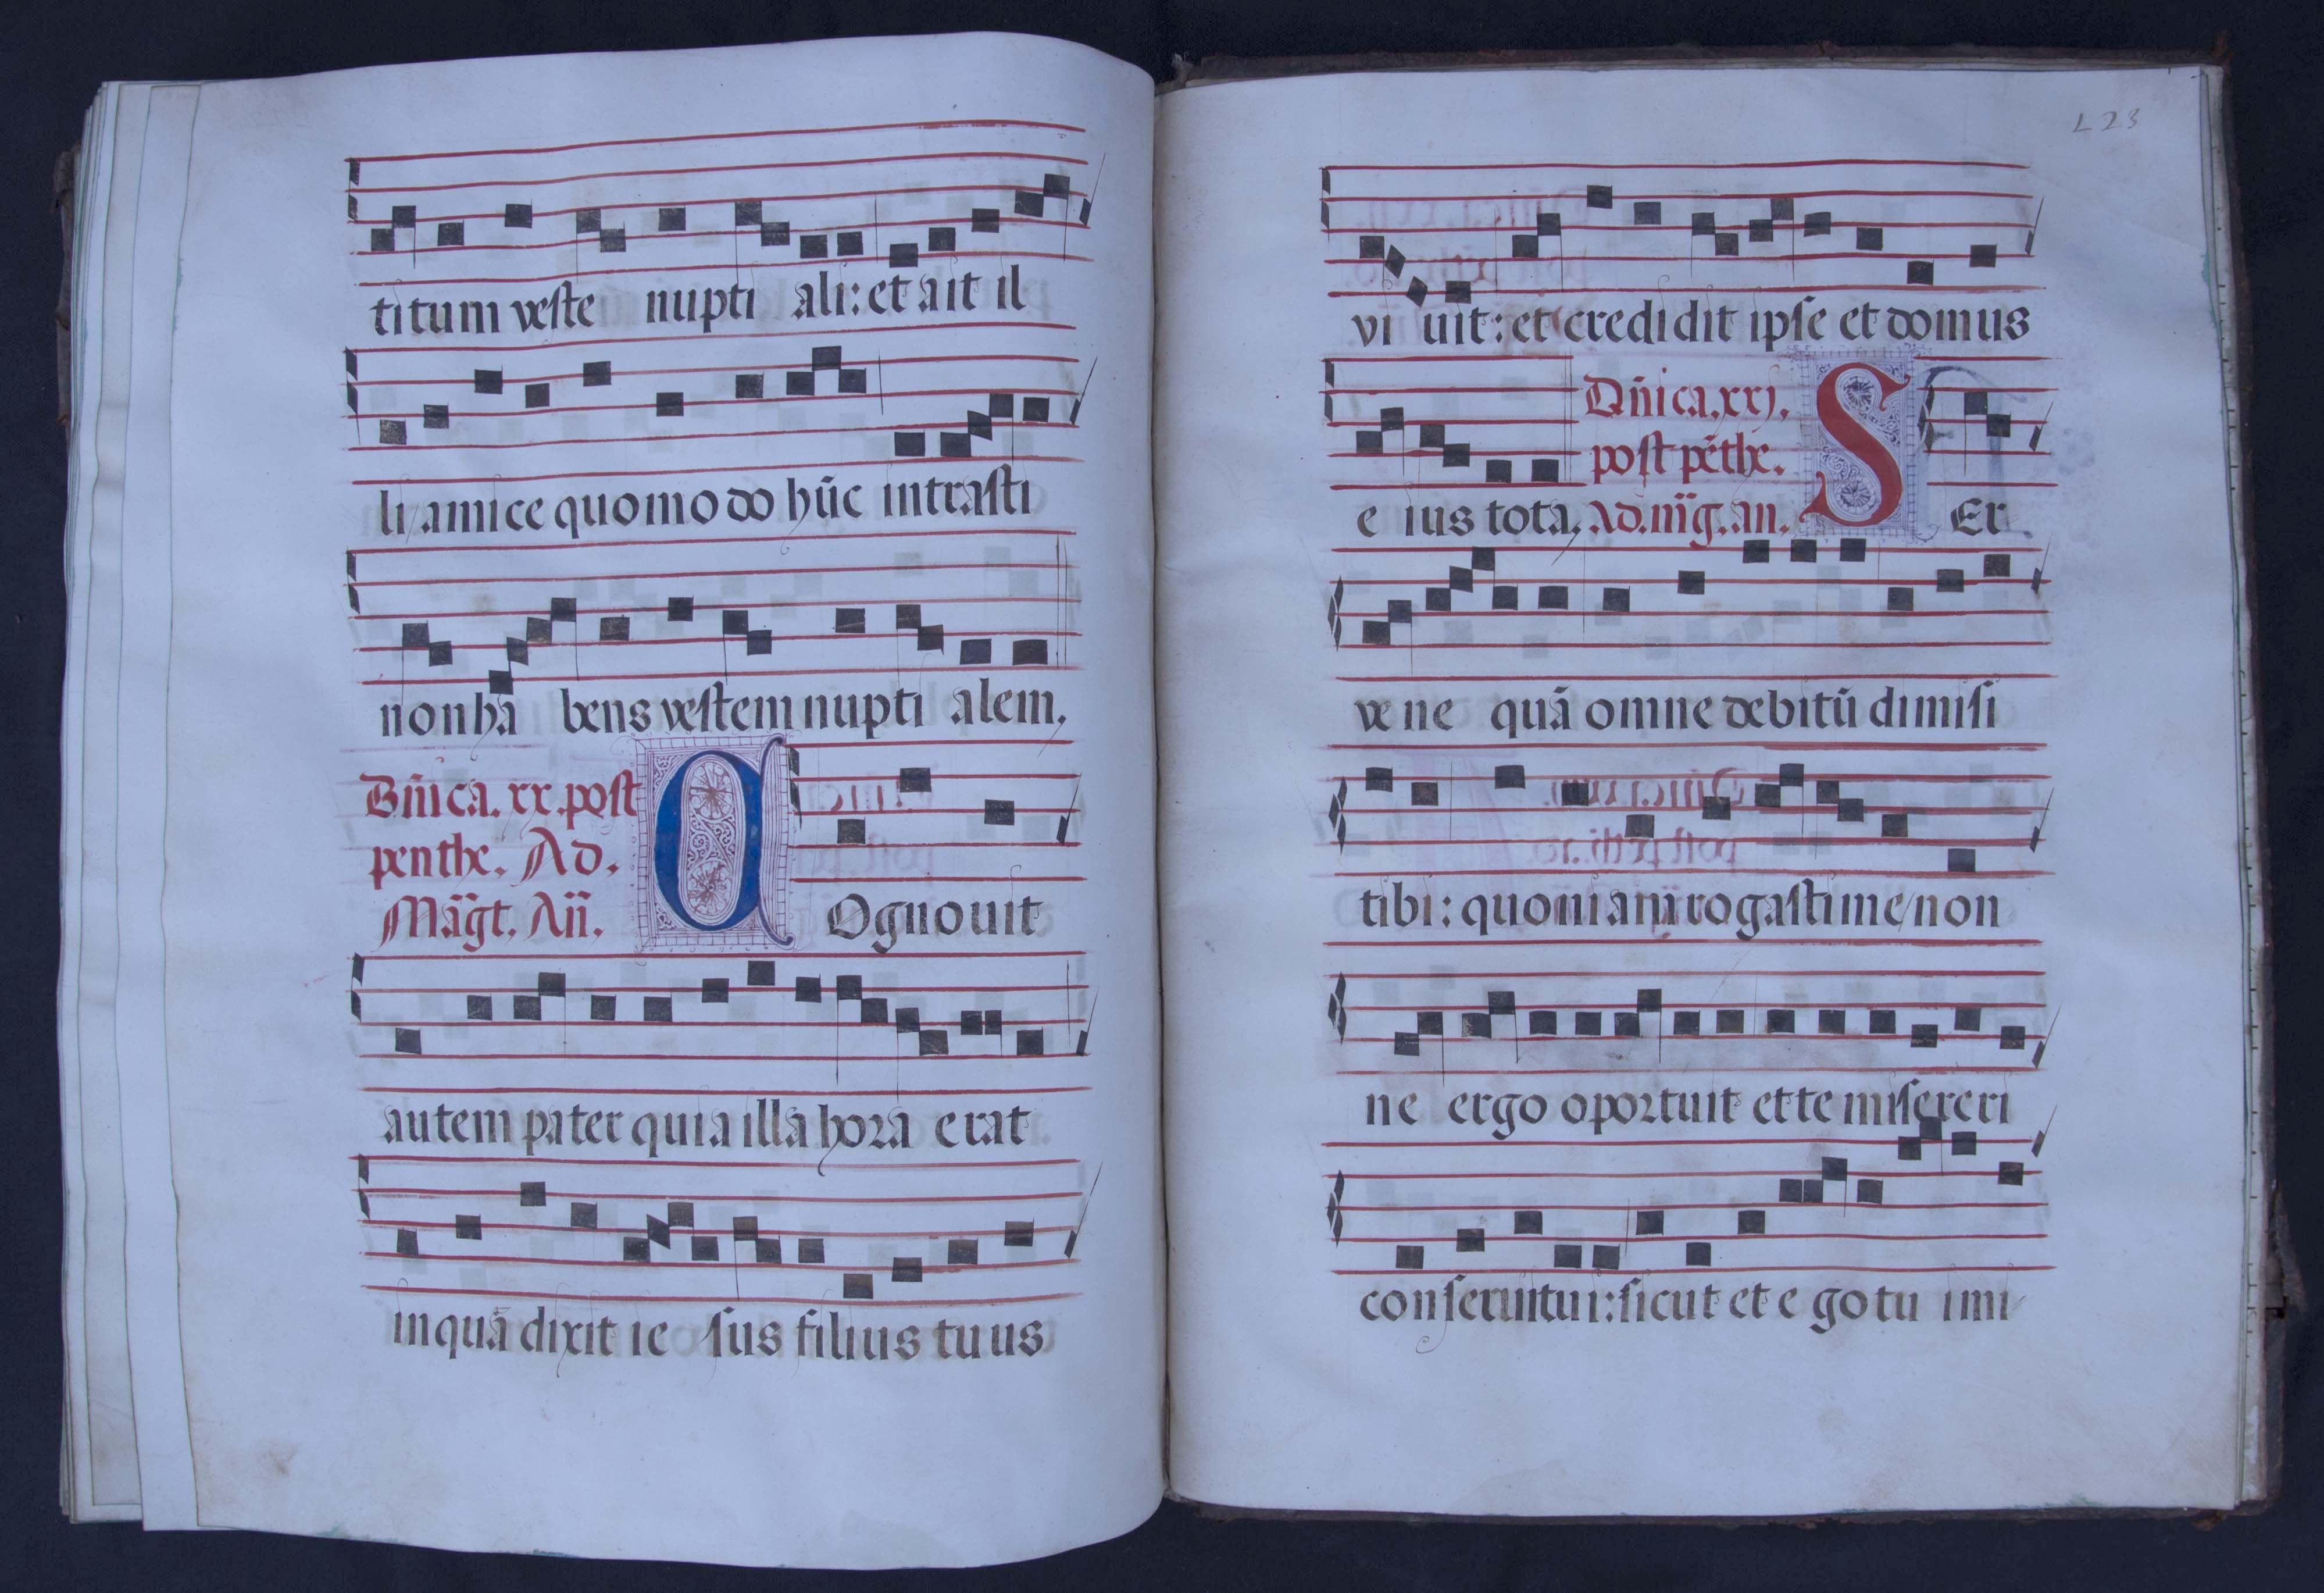 titum veste nupti ali: et ait il
li/amice quomodo hūc intrasti
non ha bens vestem nupti alem.
Dn̄ica. xx. post
penthe. Ad.
Māgt. An̄.
COgnouit
autem pater quia illa hora erat
in quā dixit ie sus filius tuus
L23
vi uit: et credidit ipse et domus
e ius tota.
Dn̄ica. xxj.
post pēthe.
Ad. m̄g. an.
SEr
ve ne quā omne debitū dimisi
tibi: quoniam rogasti me/non
ne ergo oportuit et te misereri
conserui tui: sicut et ego tu i mi